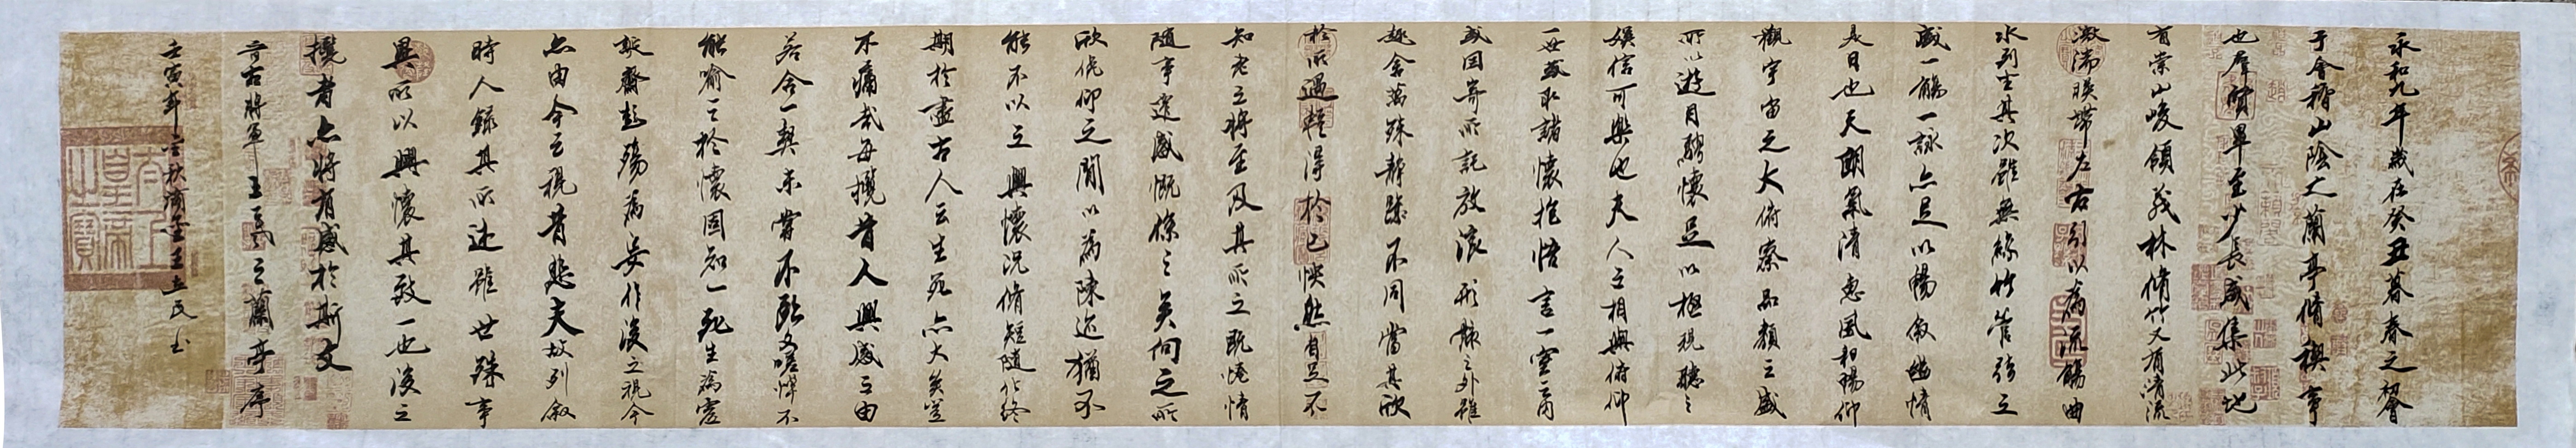 永和九年歲在癸丑暮春之初會
于會稽山陰之蘭亭脩禊事
也羣賢畢至少長咸集此地
有崇山峻領茂林脩竹又有清流
激湍暎帶左右引以為流觴曲
水列坐其次雖無絲竹管弦之
盛一觴一詠亦足以暢敘幽情
是日也天朗氣清惠風和暢仰
觀宇宙之大俯察品類之盛
所以遊目騁懷足以極視聽之
娛信可樂也夫人之相與俯仰
一世或取諸懷抱悟言一室之內
或因寄所託放浪形骸之外雖
趣舍萬殊靜躁不同當其欣
於所遇暫得於己怏然自足不
知老之將至及其所之既惓情
隨事遷感慨係之矣向之所
欣俛仰之閒以為陳迹猶不
能不以之興懷況脩短隨化終
期於盡古人云生死亦大矣豈
不痛哉每攬昔人興感之由
若合一契未嘗不臨文嗟悼不
能喻之於懷固知一死生為虛
誕齊彭殤為妄作後之視今
亦由今之視昔悲夫故列敘
時人錄其所述雖世殊事
異所以興懷其致一也後之
攬者亦將有感於斯文
晉右將軍王羲之蘭亭序
壬寅年秋王立民書
太上皇帝之寶